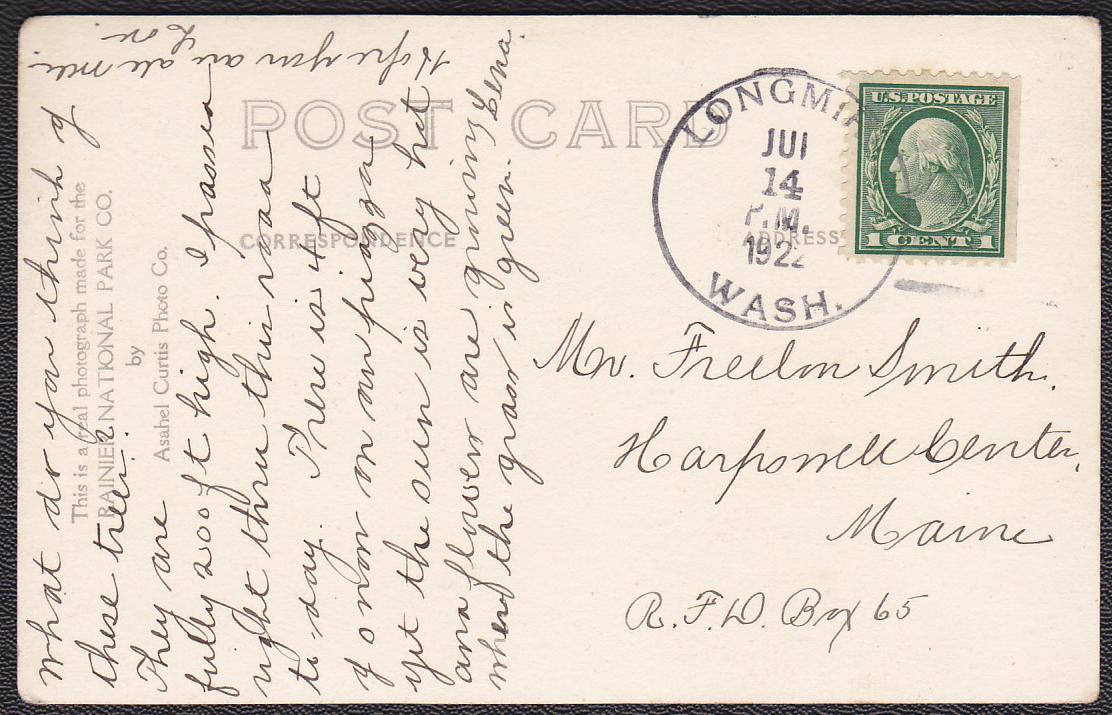 POST CARD
CORRESPONDENCE
ADDRESS
This is a real photograph made for the
RAINIER NATIONAL PARK CO.
by
Asahel Curtis Photo Co.
LONGMI
JUL
14
P.M.
1922
WASH.
U.S. POSTAGE
1 CENT 1
What do you think of
these trees?
They are
fully 200 ft high. I passed
right thru this road
to-day. There is 4 ft
of snow on our piazza
yet the sun is very hot
and flowers are growing
where the grass is green. Lena.
Hope you are all well.
Love
Mr. Freelon Smith.
Harpswell Center,
Maine
R.F.D. Box 65